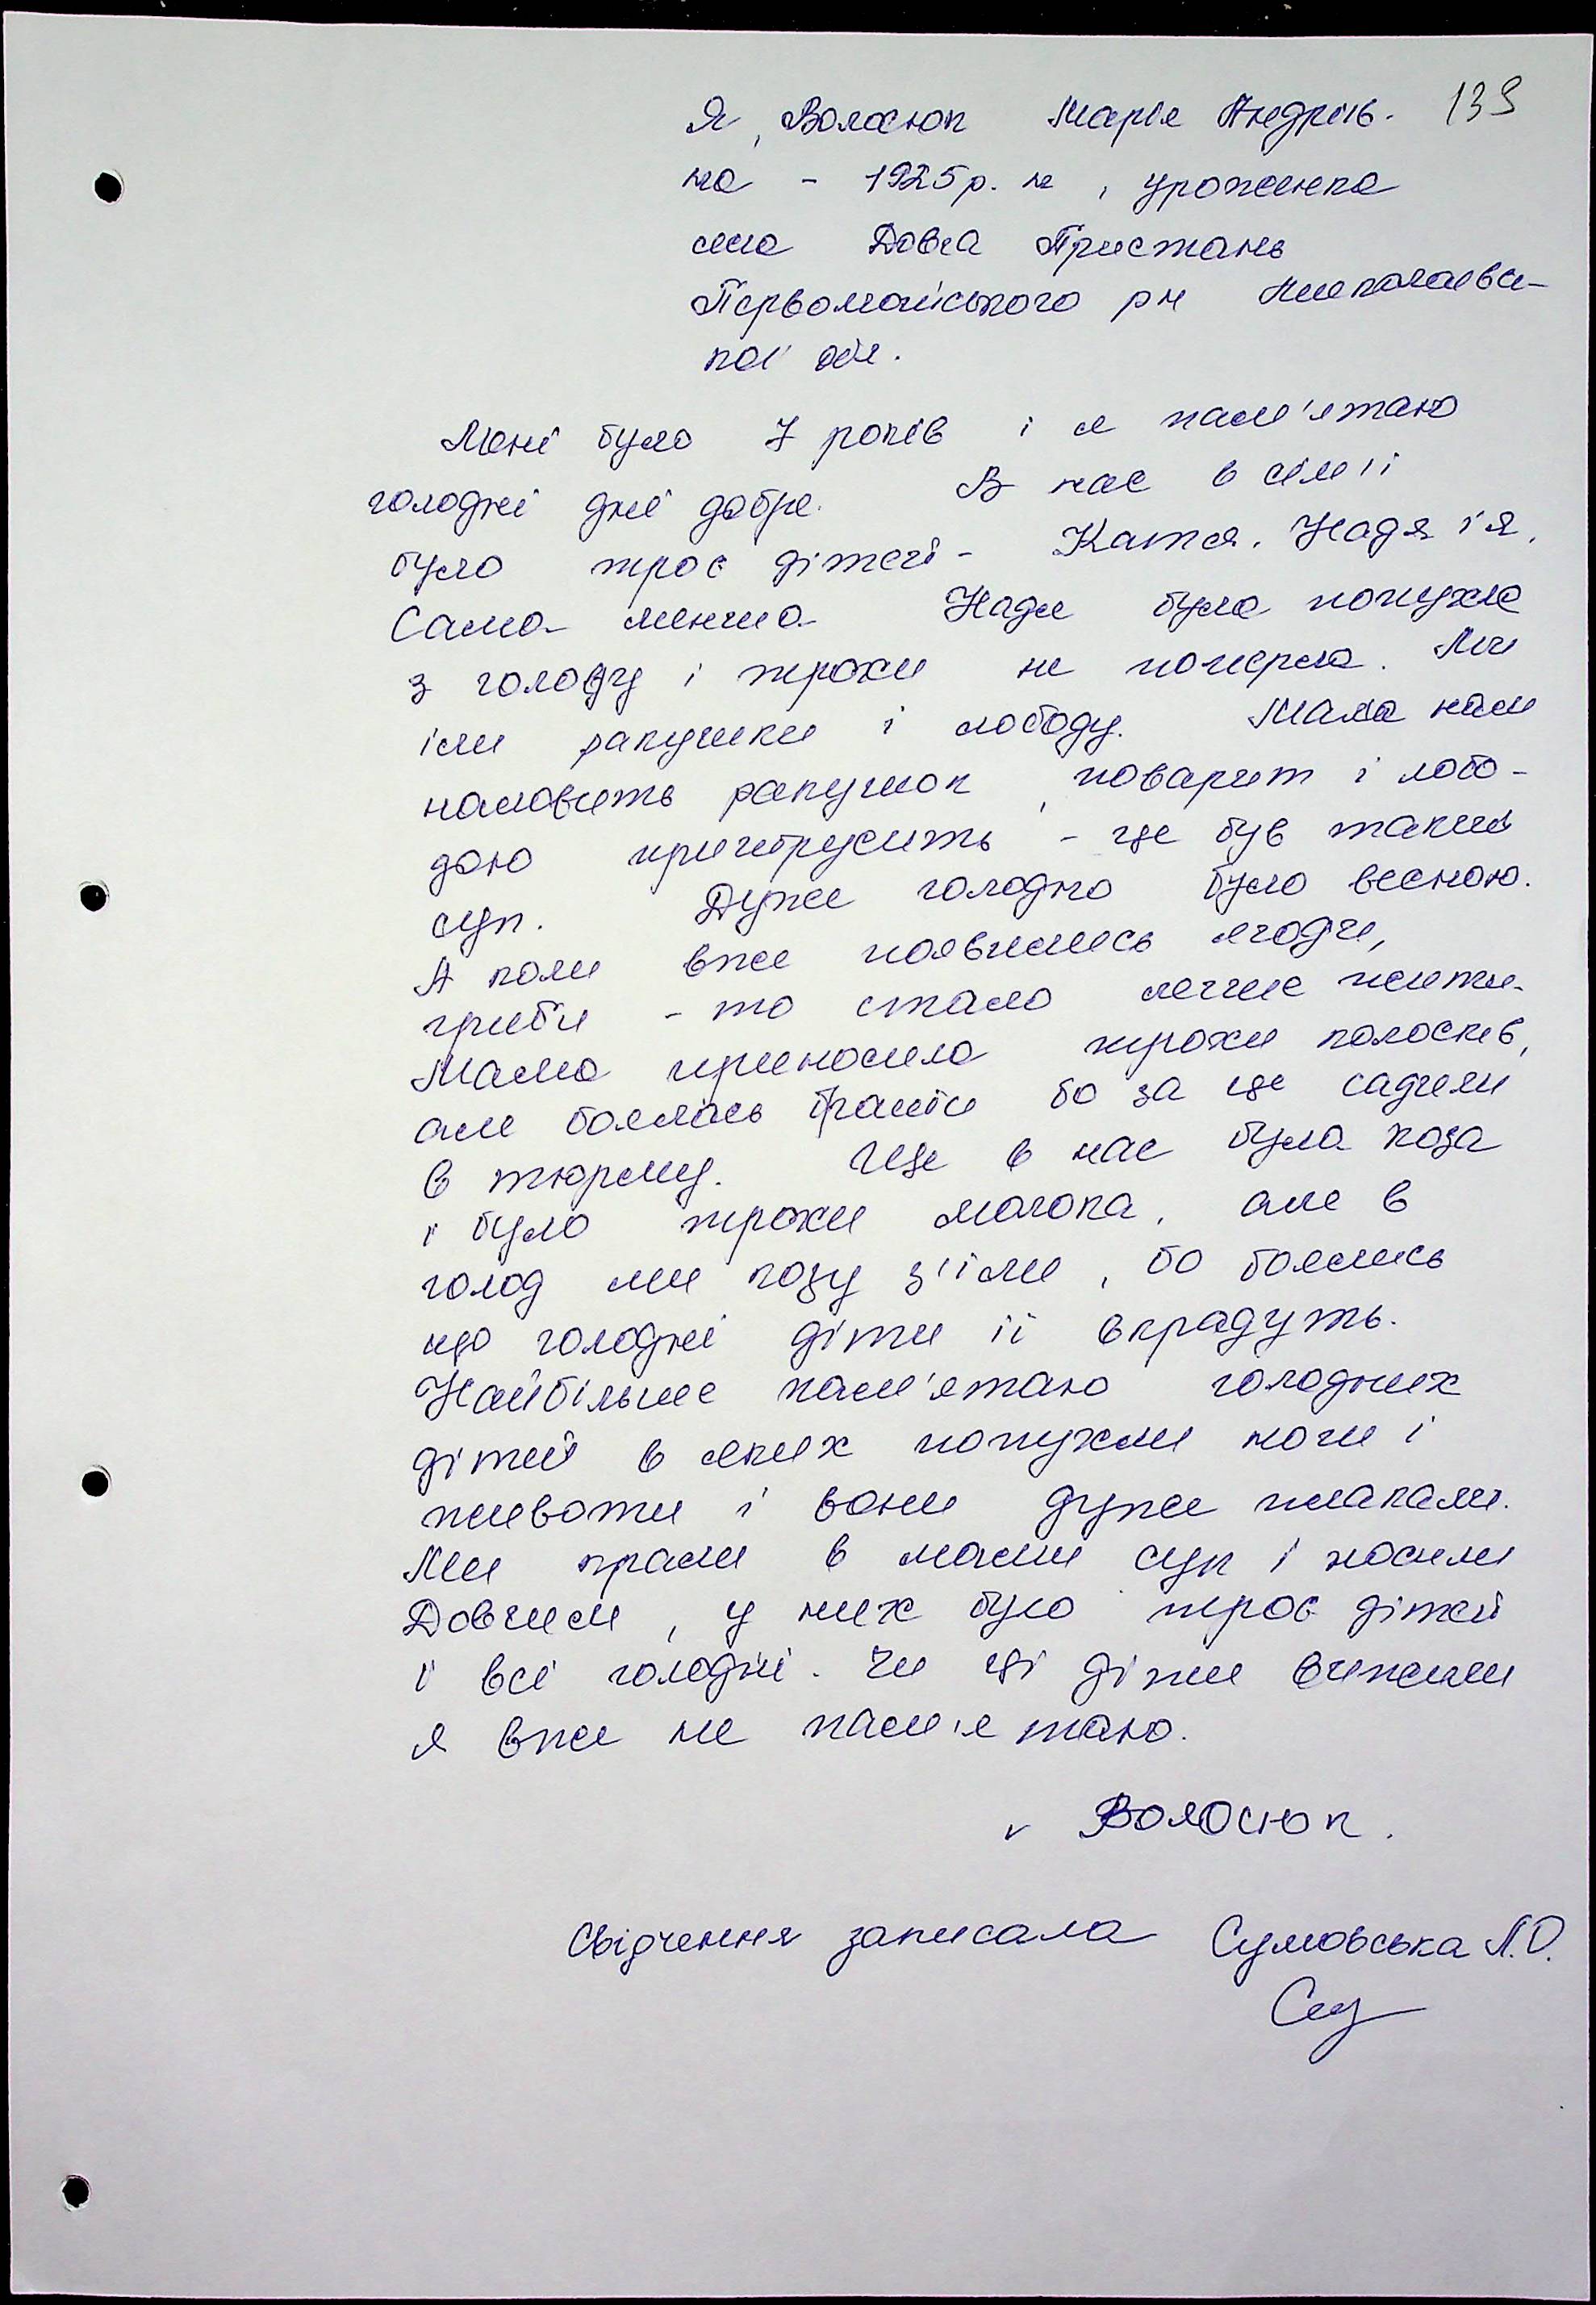 139
Я, Волосюк Марія Андріїв-
на - 1925 р. н, уроженка
села Довга Пристань
Первомайського рн Миколаївсь-
кої обл.
Мені було 7 років і я пам'ятаю
голодні дні добре. В нас в сім'ї
було троє дітей - Катя, Надя і я.
Сама менша Надя була попухла
з голоду і трохи не померла. Ми
їли ракушки і лободу. Мама нам
наловить ракушок, поварит і лобо-
дою притрусить - це був такий
суп. Дуже голодно було весною.
А коли вже появились ягоди,
гриби - то стало легше жити.
Мама приносила трохи колосків,
але боялась брати бо за це садили
в тюрму. Ще в нас була коза
і було трохи молока, але в
голод ми козу з'їли, бо боялись
що голодні діти її вкрадуть.
Найбільше пам'ятаю голодних
дітей в яких попухли ноги і
животи і вони дуже плакали.
Ми крали в мами суп і носили
Довгим, у них було троє дітей
і всі голодні. Чи ці діти вижили
я вже не пам'ятаю.
v Волосюк.
Свідчення записала Сумовська Л.О.